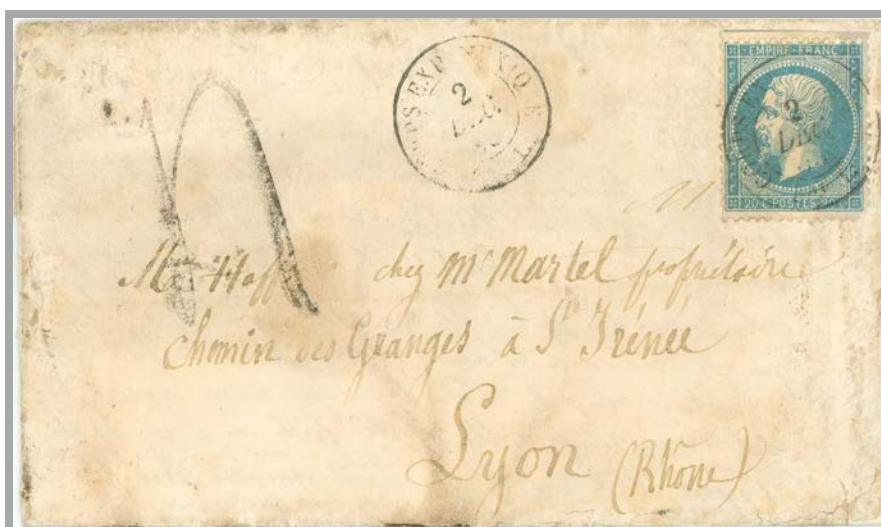 EXP. MEXIQ
2
DEC
EMPIRE·FRANC
2
DEC
20 c POSTES 20 c
Mme Haff chez Mr Martel propriétaire
Chemin des Granges à St Irénée
Lyon (Rhône)